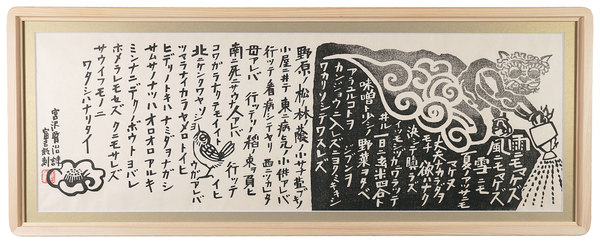 雨ニモマケズ
風ニモマケズ
雪ニモ
夏ノアツサニモ
マケヌ
丈夫ナカラダ
ヲモチ 欲ハナク
決シテ瞋ラズ
イツモシヅカニワラッテ
ヰル一日ニ玄米四合ト
味噌ト少シノ 野菜ヲタベ
アラユルコトヲ ジブンヲ
カンジョウニ入レズニヨクミキキシ
ワカリソシテワスレズ
野原ノ松ノ林ノ蔭ノ小サナ萱ブキノ
小屋ニヰテ 東ニ病気ノ小供アレバ
行ッテ看病シテヤリ 西ニツカレタ
母アレバ 行ッテソノ稲ノ束ヲ負ヒ
南ニ死ニサウナ人アレバ 行ッテ
コワガラナクテモイイトイヒ
北ニケンクヮヤソショウガアレバ
ツマラナイカラヤメロトイヒ
ヒデリノトキハナミダヲナガシ
サムサノナツハオロオロアルキ
ミンナニデクノボウトヨバレ
ホメラレモセズ クニモサレズ
サウイフモノニ
ワタシハナリタイ
宮沢賢治詩